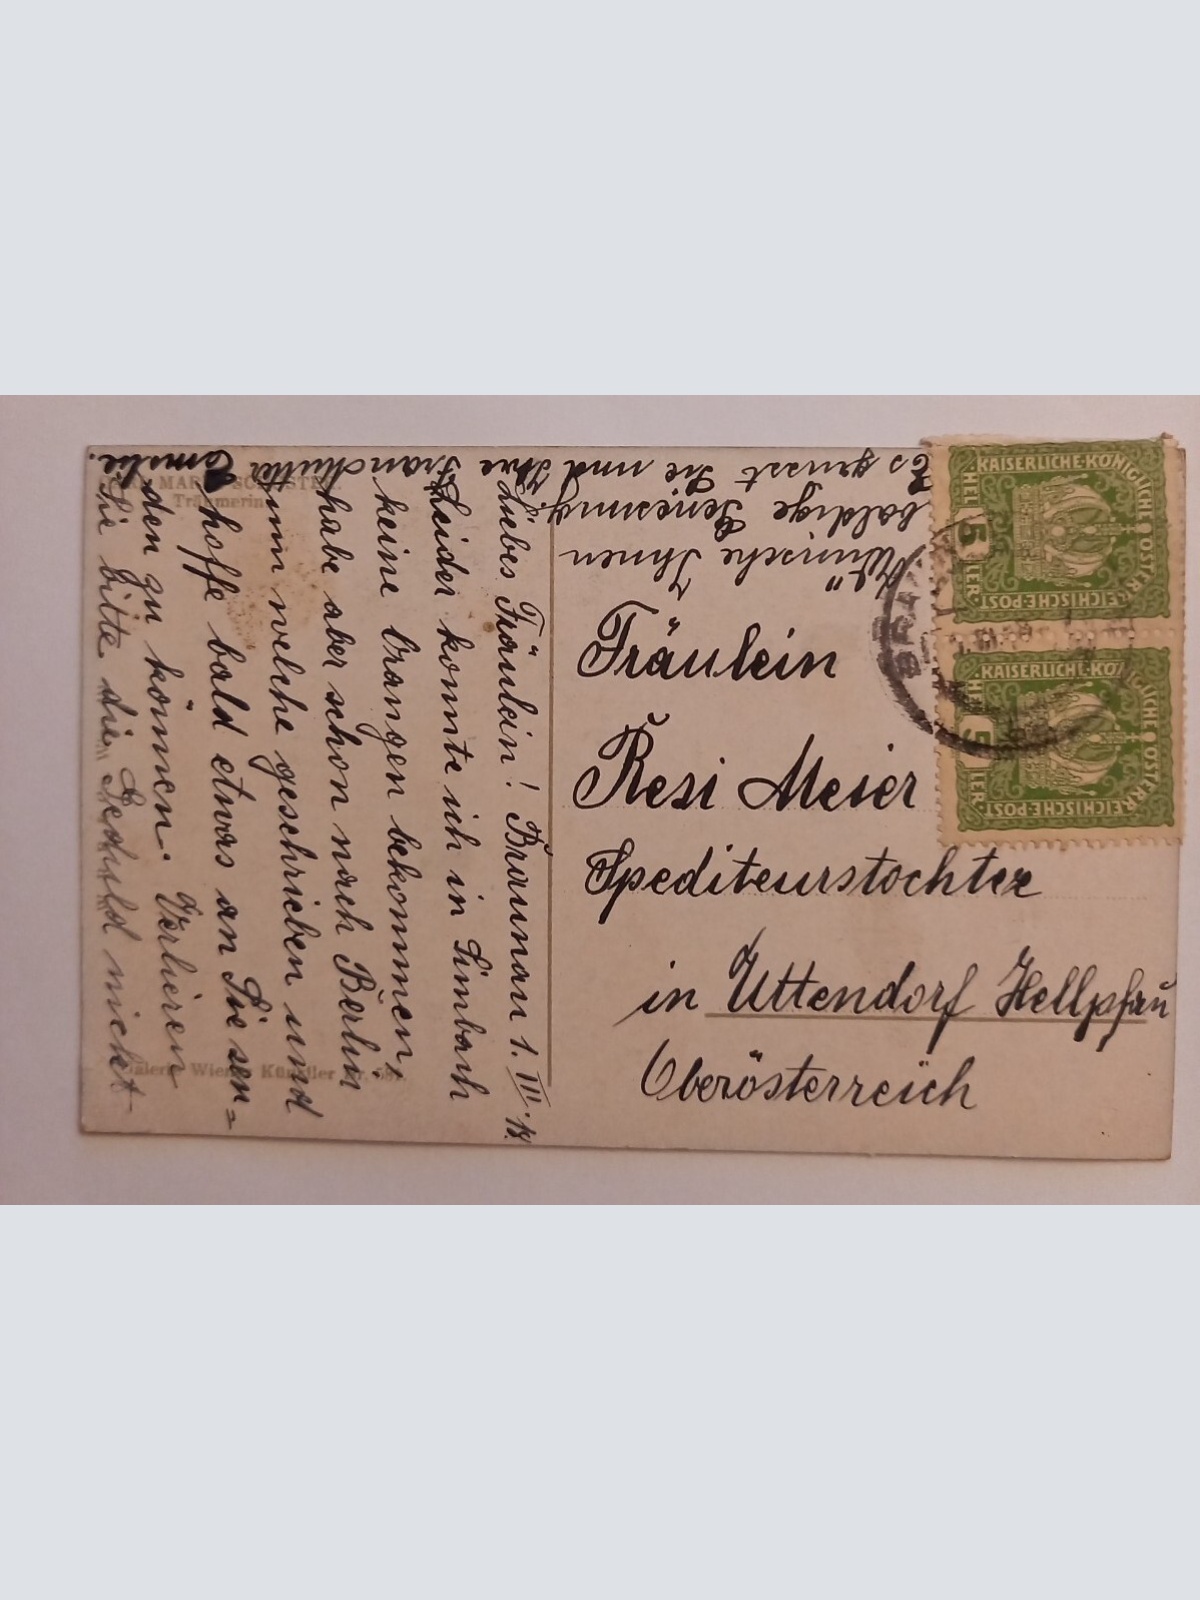 Liebes Fräulein! Braunau 1. III. 18.
Leider konnte ich in Simbach
keine Orangen bekommen,
habe aber schon nach Berlin
um welche geschrieben und
hoffe bald etwas an Sie sen=
den zu können. Verlieren
Sie bitte die Geduld nicht
Wünsche Ihnen
baldige Genesung.
Es grüsst Sie und Ihre Frau Mutter
Fräulein
Resi Meier
Spediteurstochter
in Uttendorf Helpfau
Oberösterreich
MARIA SCHUSTER.
Träumerin
Galerie Wiener Künstler Nr.
KAISERLICHE·KÖNIGLICHE ÖSTERREICHISCHE·POST
5 HELLER
KAISERLICHE·KÖNIGLICHE ÖSTERREICHISCHE·POST
5 HELLER